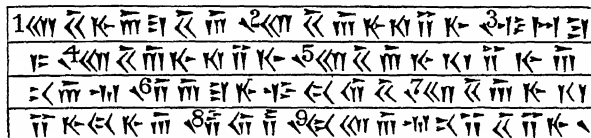 1 𐎧𐏁𐎹𐎠𐎼𐏁𐎠 𐏐 2 𐎧𐏁𐎠𐎹𐎰𐎡𐎹 𐏐 3 𐎺𐏀𐎼
𐎣 𐏐 4 𐎧𐏁𐎠𐎹𐎰𐎡𐎹 𐏐 5 𐎧𐏁𐎠𐎹𐎰𐎡𐎹𐎠
𐎴𐎠𐎶 𐏐 6 𐎭𐎠𐎼𐎹𐎺𐏃𐎢𐏁 𐏐 7 𐎧𐏁𐎠𐎹𐎰
𐎡𐎹𐏃𐎹𐎠 𐏐 8 𐎱𐎢𐏂 𐏐 9 𐏃𐎧𐎠𐎶𐎴𐎡𐏁𐎡𐎹 𐏐